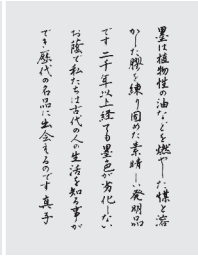 墨は植物性の油などを燃やした煤と溶
かした膠を練り固めた素晴しい発明品
です 二千年以上経ても墨色が劣化しない
お蔭で私たちは古代の人の生活を知る事が
でき歴代の名品に出会えるのです 真子